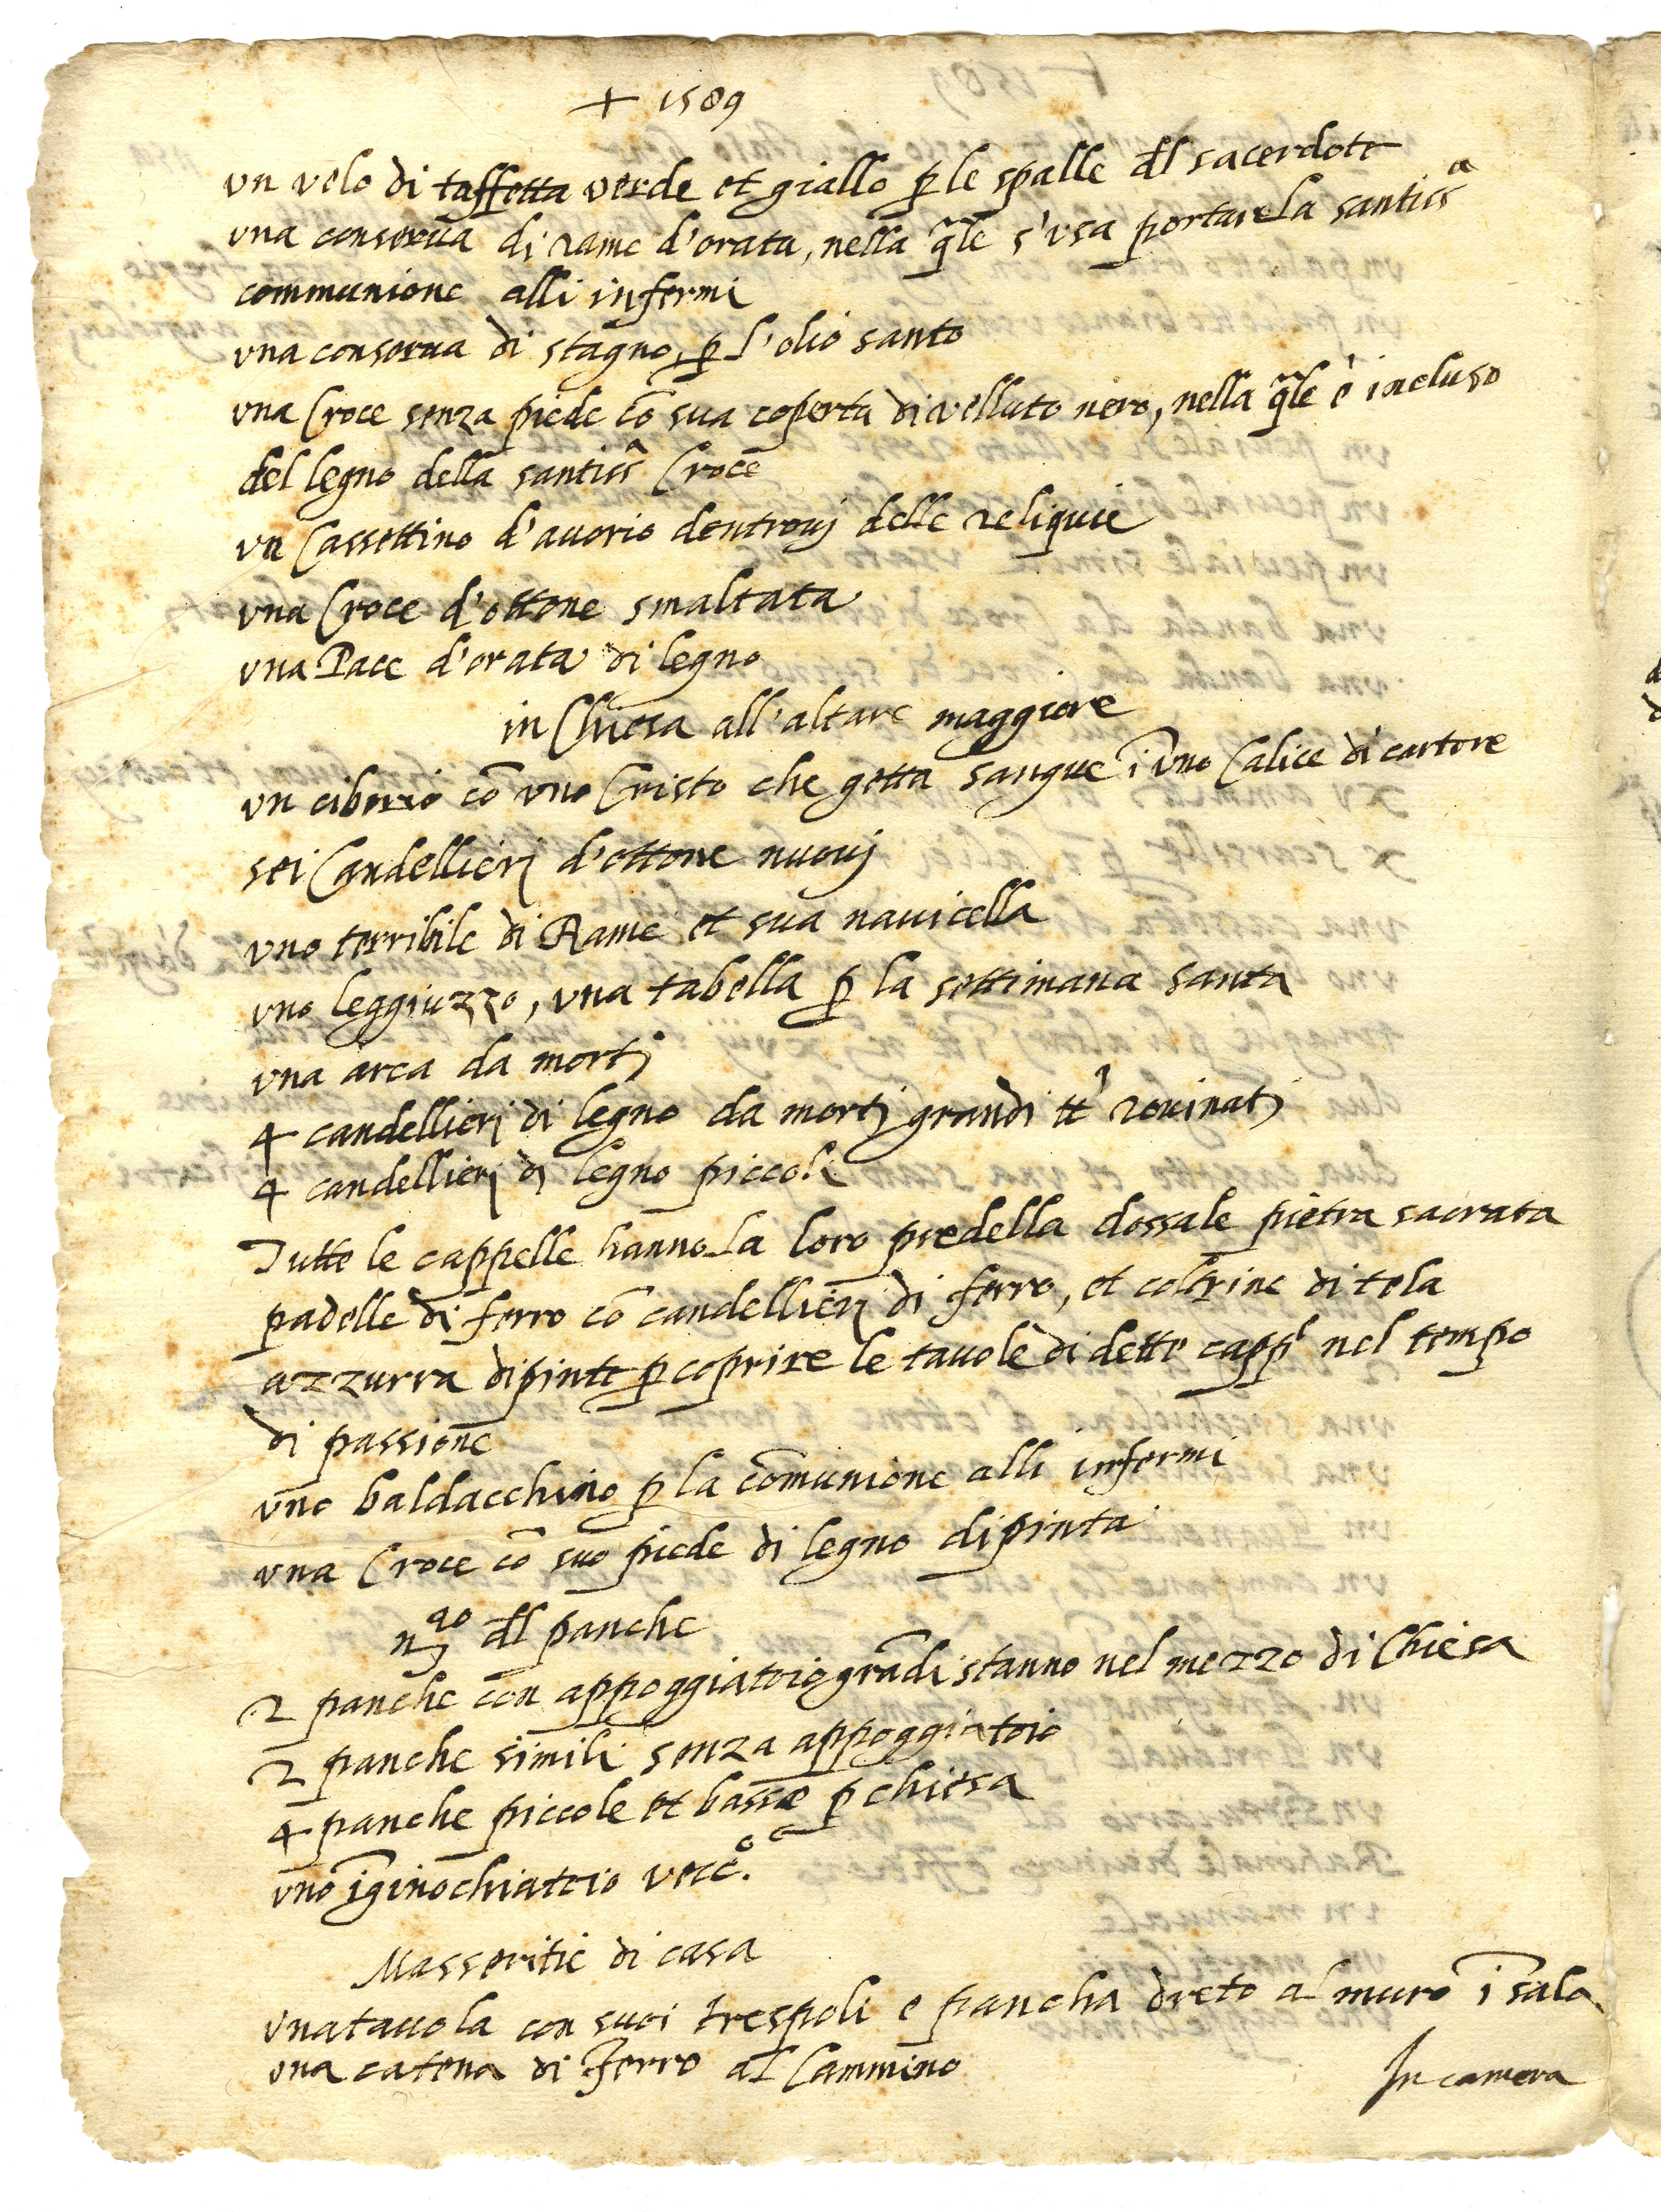 + 1589
un velo di taffetta verde et giallo p̱ le spalle dl sacerdote
una conserua di rame d'orata, nella q̃le s'usa portare la santissᵃ
communione alli infermi
una conserua di stagno p̱ l'olio santo
una Croce senza piede cō sua coperta di velluto nero, nella q̃le è incluso
del legno della santissᵃ Croce
un Cassettino d'auorio dentrouj delle reliquie
una Croce d'ottone smaltata
una Pace d'orata di legno
in Chiesa all'altare maggiore
un ciborio cō uno Cristo che getta sangue ī uno Calice di cartone
sei Candellierj d'ottone nuouj
uno terribile di Rame et sua nauicella
uno leggiuzzo, una tabella p̱ la settimana santa
una arca da mortj
4 candellierj di legno da mortj grandi ttⁱ rouinatj
4 candellierj di legno piccoli
Tutte le cappelle hanno la loro predella dossale pietra sacrata
padelle di ferro cō candellierj di ferro, et coltrine di tela
azzurra dipinte p̱ coprire le tauole di dette cappᵉ nel tempo
di passione
uno baldacchino p̱ la cōmunione alli infermi
una Croce cō suo piede di legno dipinta
dl panche
2 panche con appoggiatoio grādi stanno nel mezzo di Chiesa
2 panche simili senza appoggiatoio
4 panche piccole et basse p̱ chiesa
uno īginochiatoio vecc°.
Masseritie di casa
una tauola con suoi trespoli e pancha dreto al muro ī sala
una catena di Ferro al Cammino
In camera